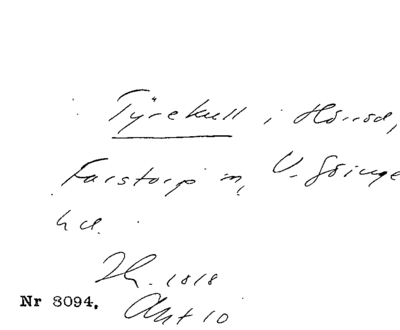 Tÿrekull i Hörröd,
Farstorp sn, V. Göinge
hd.
Lk. 1818
Akt 10
Nr 8094.